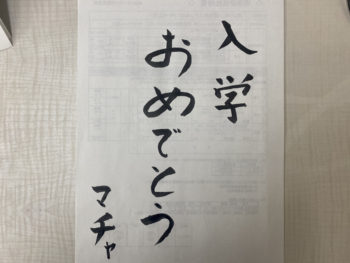 入学
おめでとう
マチャ